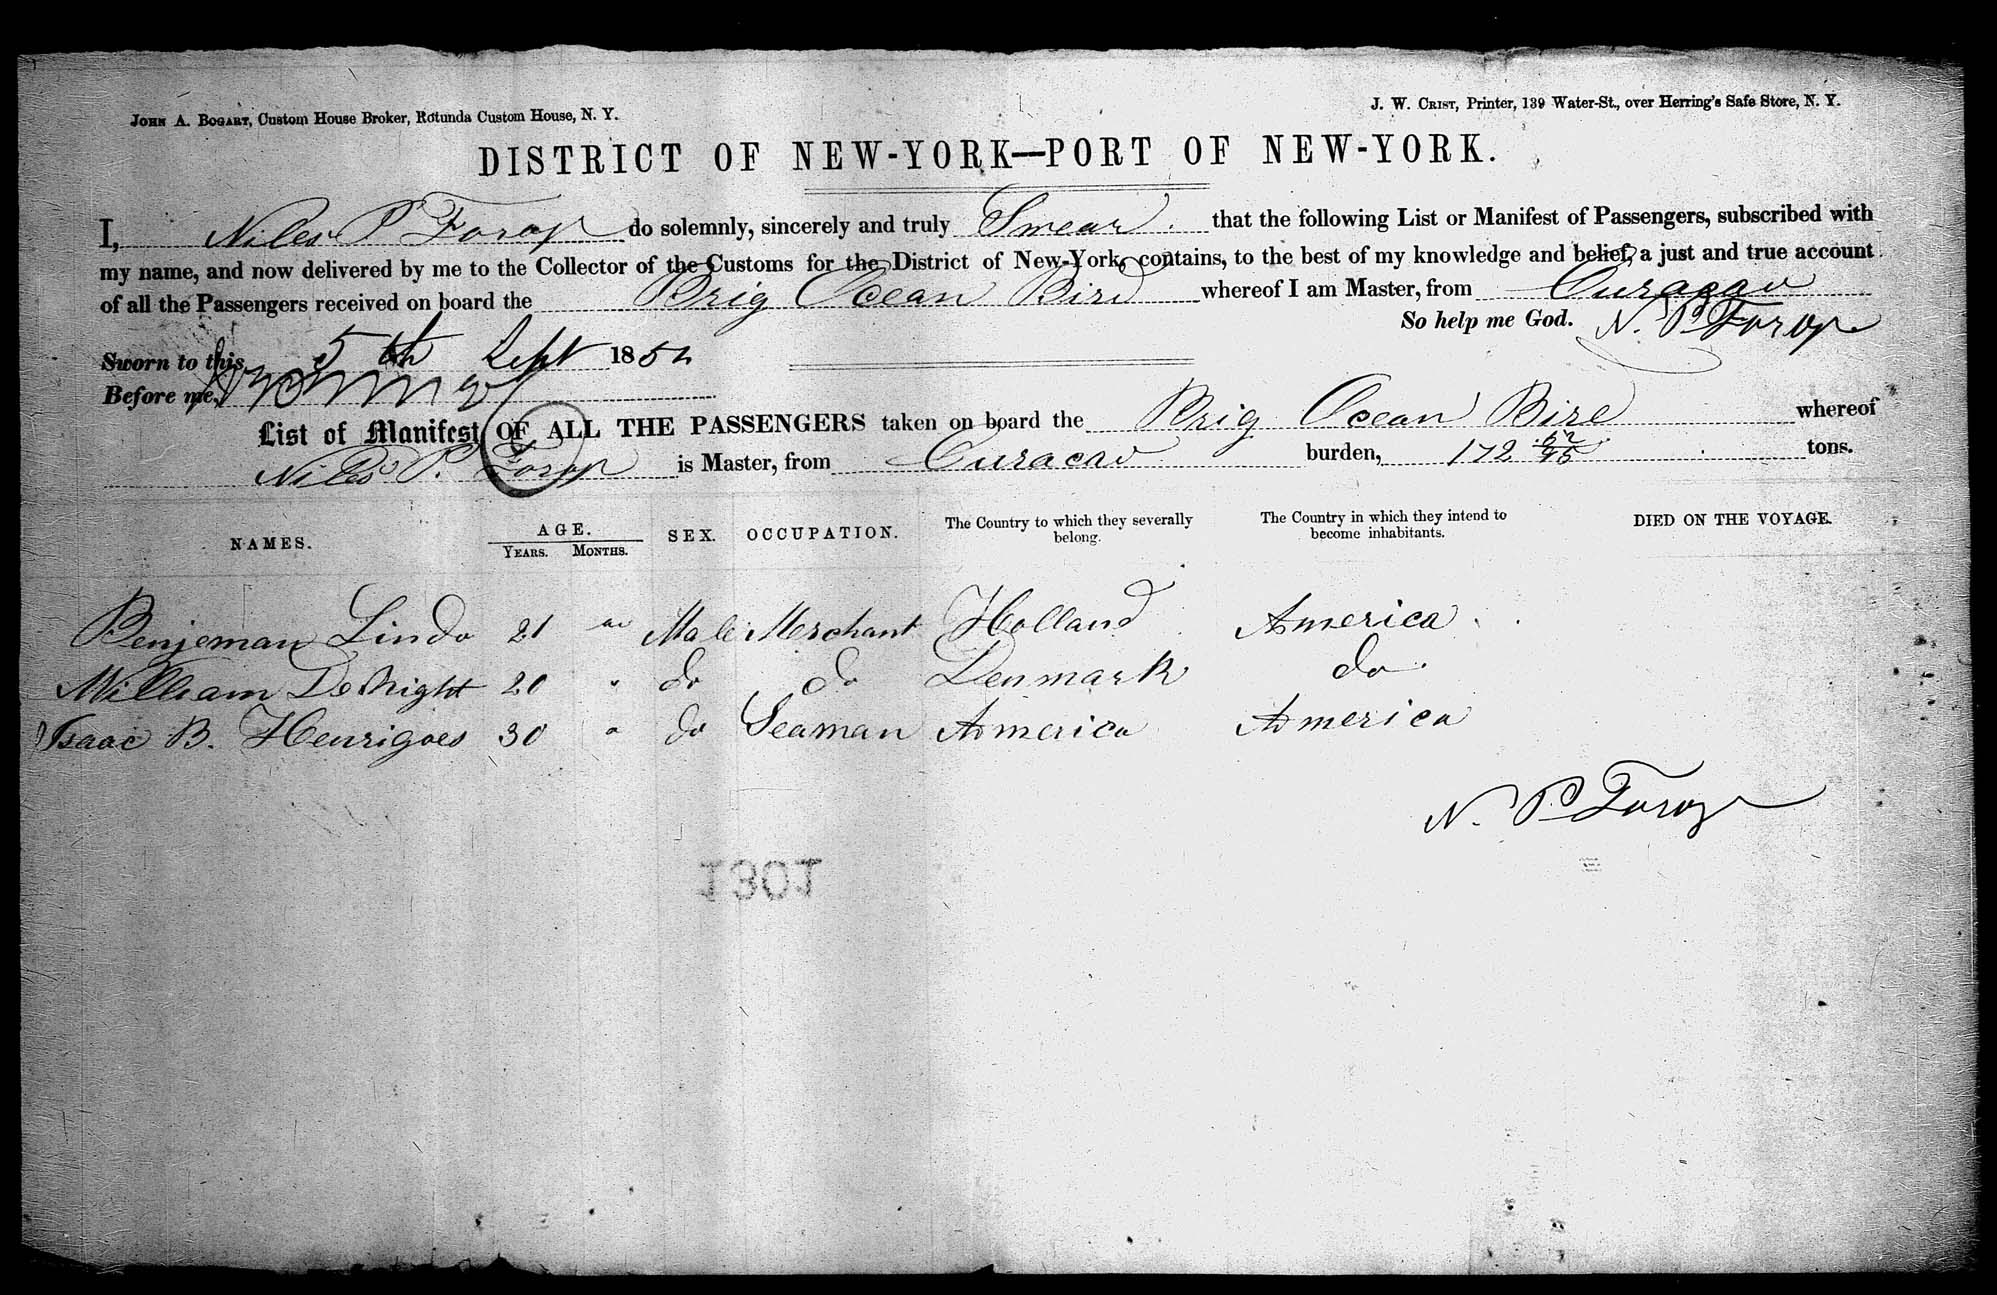 JOHN A. BOGART, Custom House Broker, Rotunda Custom House, N. Y.
J. W. CRIST, Printer, 139 Water-St., over Herring's Safe Store, N. Y.
DISTRICT OF NEW-YORK—PORT OF NEW-YORK.
I, Niles P do solemnly, sincerely and truly Swear that the following List or Manifest of Passengers, subscribed with
my name, and now delivered by me to the Collector of the Customs for the District of New-York, contains, to the best of my knowledge and belief, a just and true account
of all the Passengers received on board the Brig Ocean Bird whereof I am Master, from Curacao
So help me God. N. P.
Sworn to this 5th Sept 185
Before me,
List of Manifest OF ALL THE PASSENGERS taken on board the Brig Ocean Bird whereof
Niles P. is Master, from Curacao burden, 172 52/95 tons.
NAMES. AGE. SEX. OCCUPATION. The Country to which they severally belong. The Country in which they intend to become inhabitants. DIED ON THE VOYAGE.
YEARS. MONTHS.
Benjeman Lindo 21 Male Merchant Holland America
William 20 " do do Denmark do
Isaac B. Henrigoes 30 " do Seaman America America
N. P.
1301